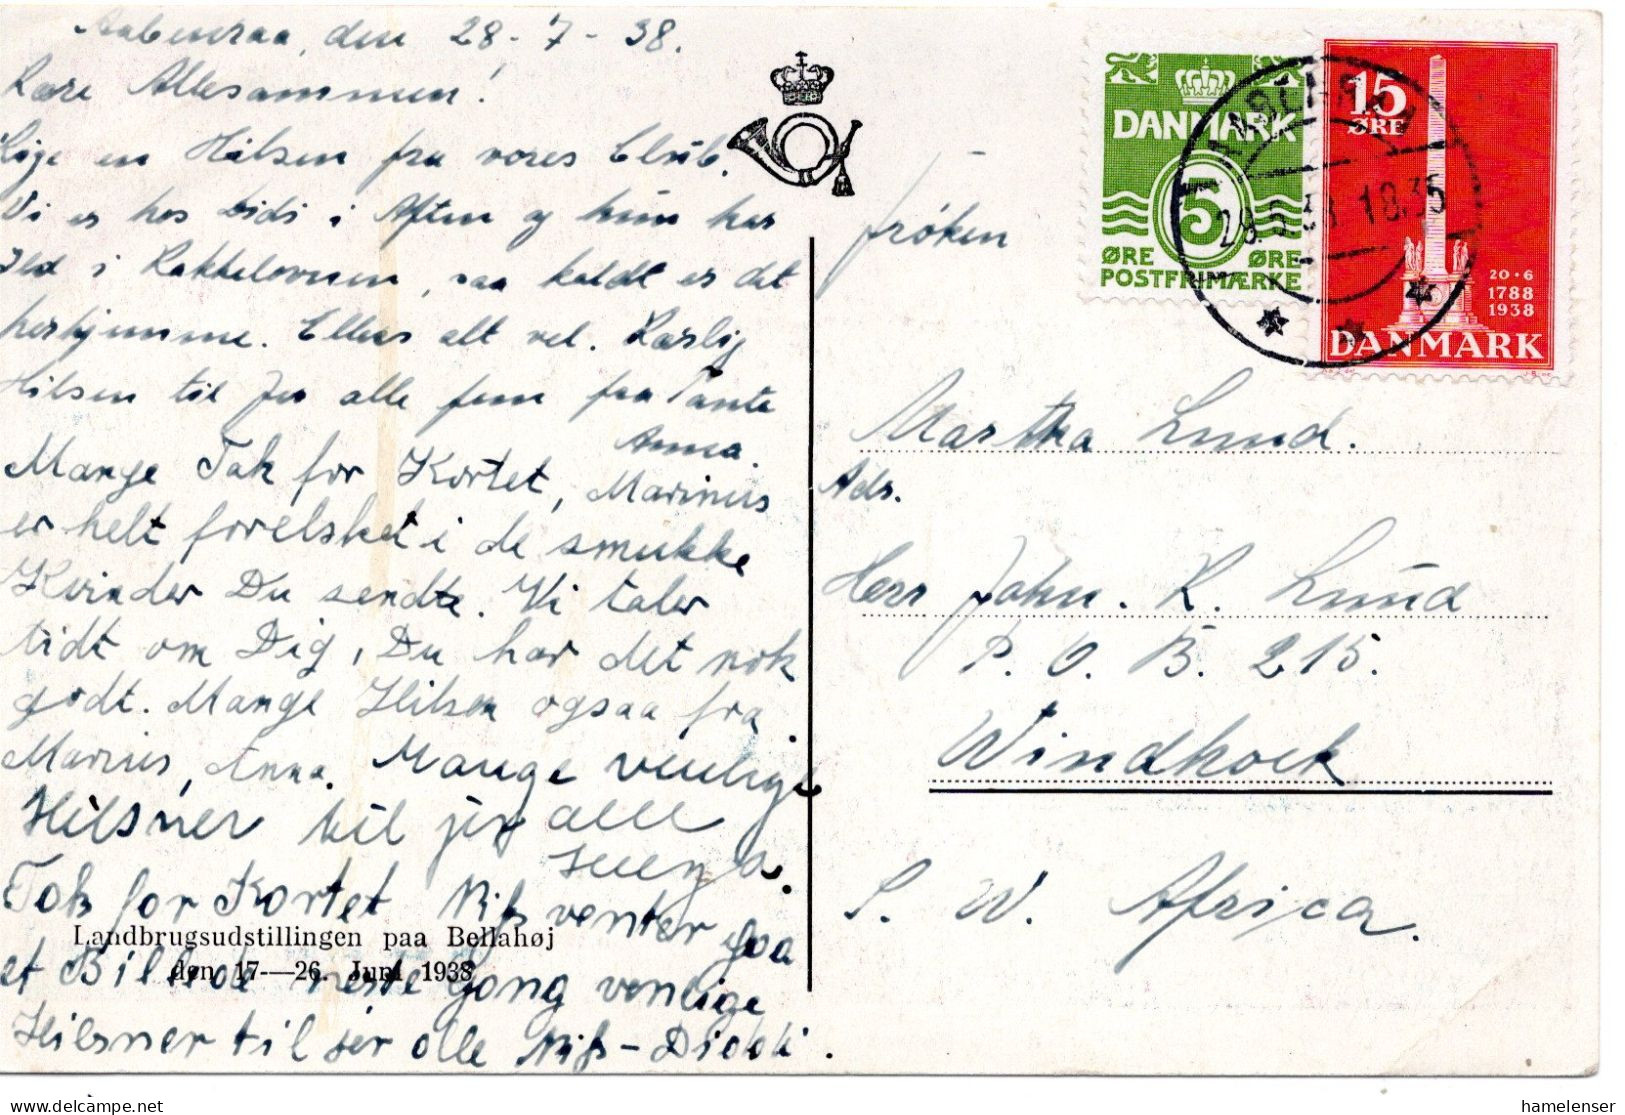 Aabenraa, den 28-7-38.
Kære Allesammen!
Lige en Hilsen fra vores Club.
Vi er hos Didi i Aften og hun har
Ild i Kakkelovnen, saa koldt er det
herhjemme. Ellers alt vel. Kærlig
Hilsen til Jer alle fem fra Tante
Anna.
Mange Tak for Kortet, Marinus
er helt forelsket i de smukke
Kvinder Du sendte. Vi taler
tidt om Dig, Du har det nok
godt. Mange Hilsen ogsaa fra
Marius, Anna. Mange venlige
Hilsner til jer alle
Tak for Kortet Nis venter paa
et Billede neste Gong venlige
Hilsner til jer alle Nis-Dickki.
Landbrugsudstillingen paa Bellahøj
den 17-—26. Juni 1938
DANMARK
5
ØRE ØRE
POSTFRIMÆRKE
15
ØRE
20·6
1788
1938
DANMARK
AABENRAA
18.35
frøken
Martha Lund.
Adr.
Herr John. K. Lund
P. O. B. 215.
Windhoek
S. W. Africa.
delcampe.net
hamelenser